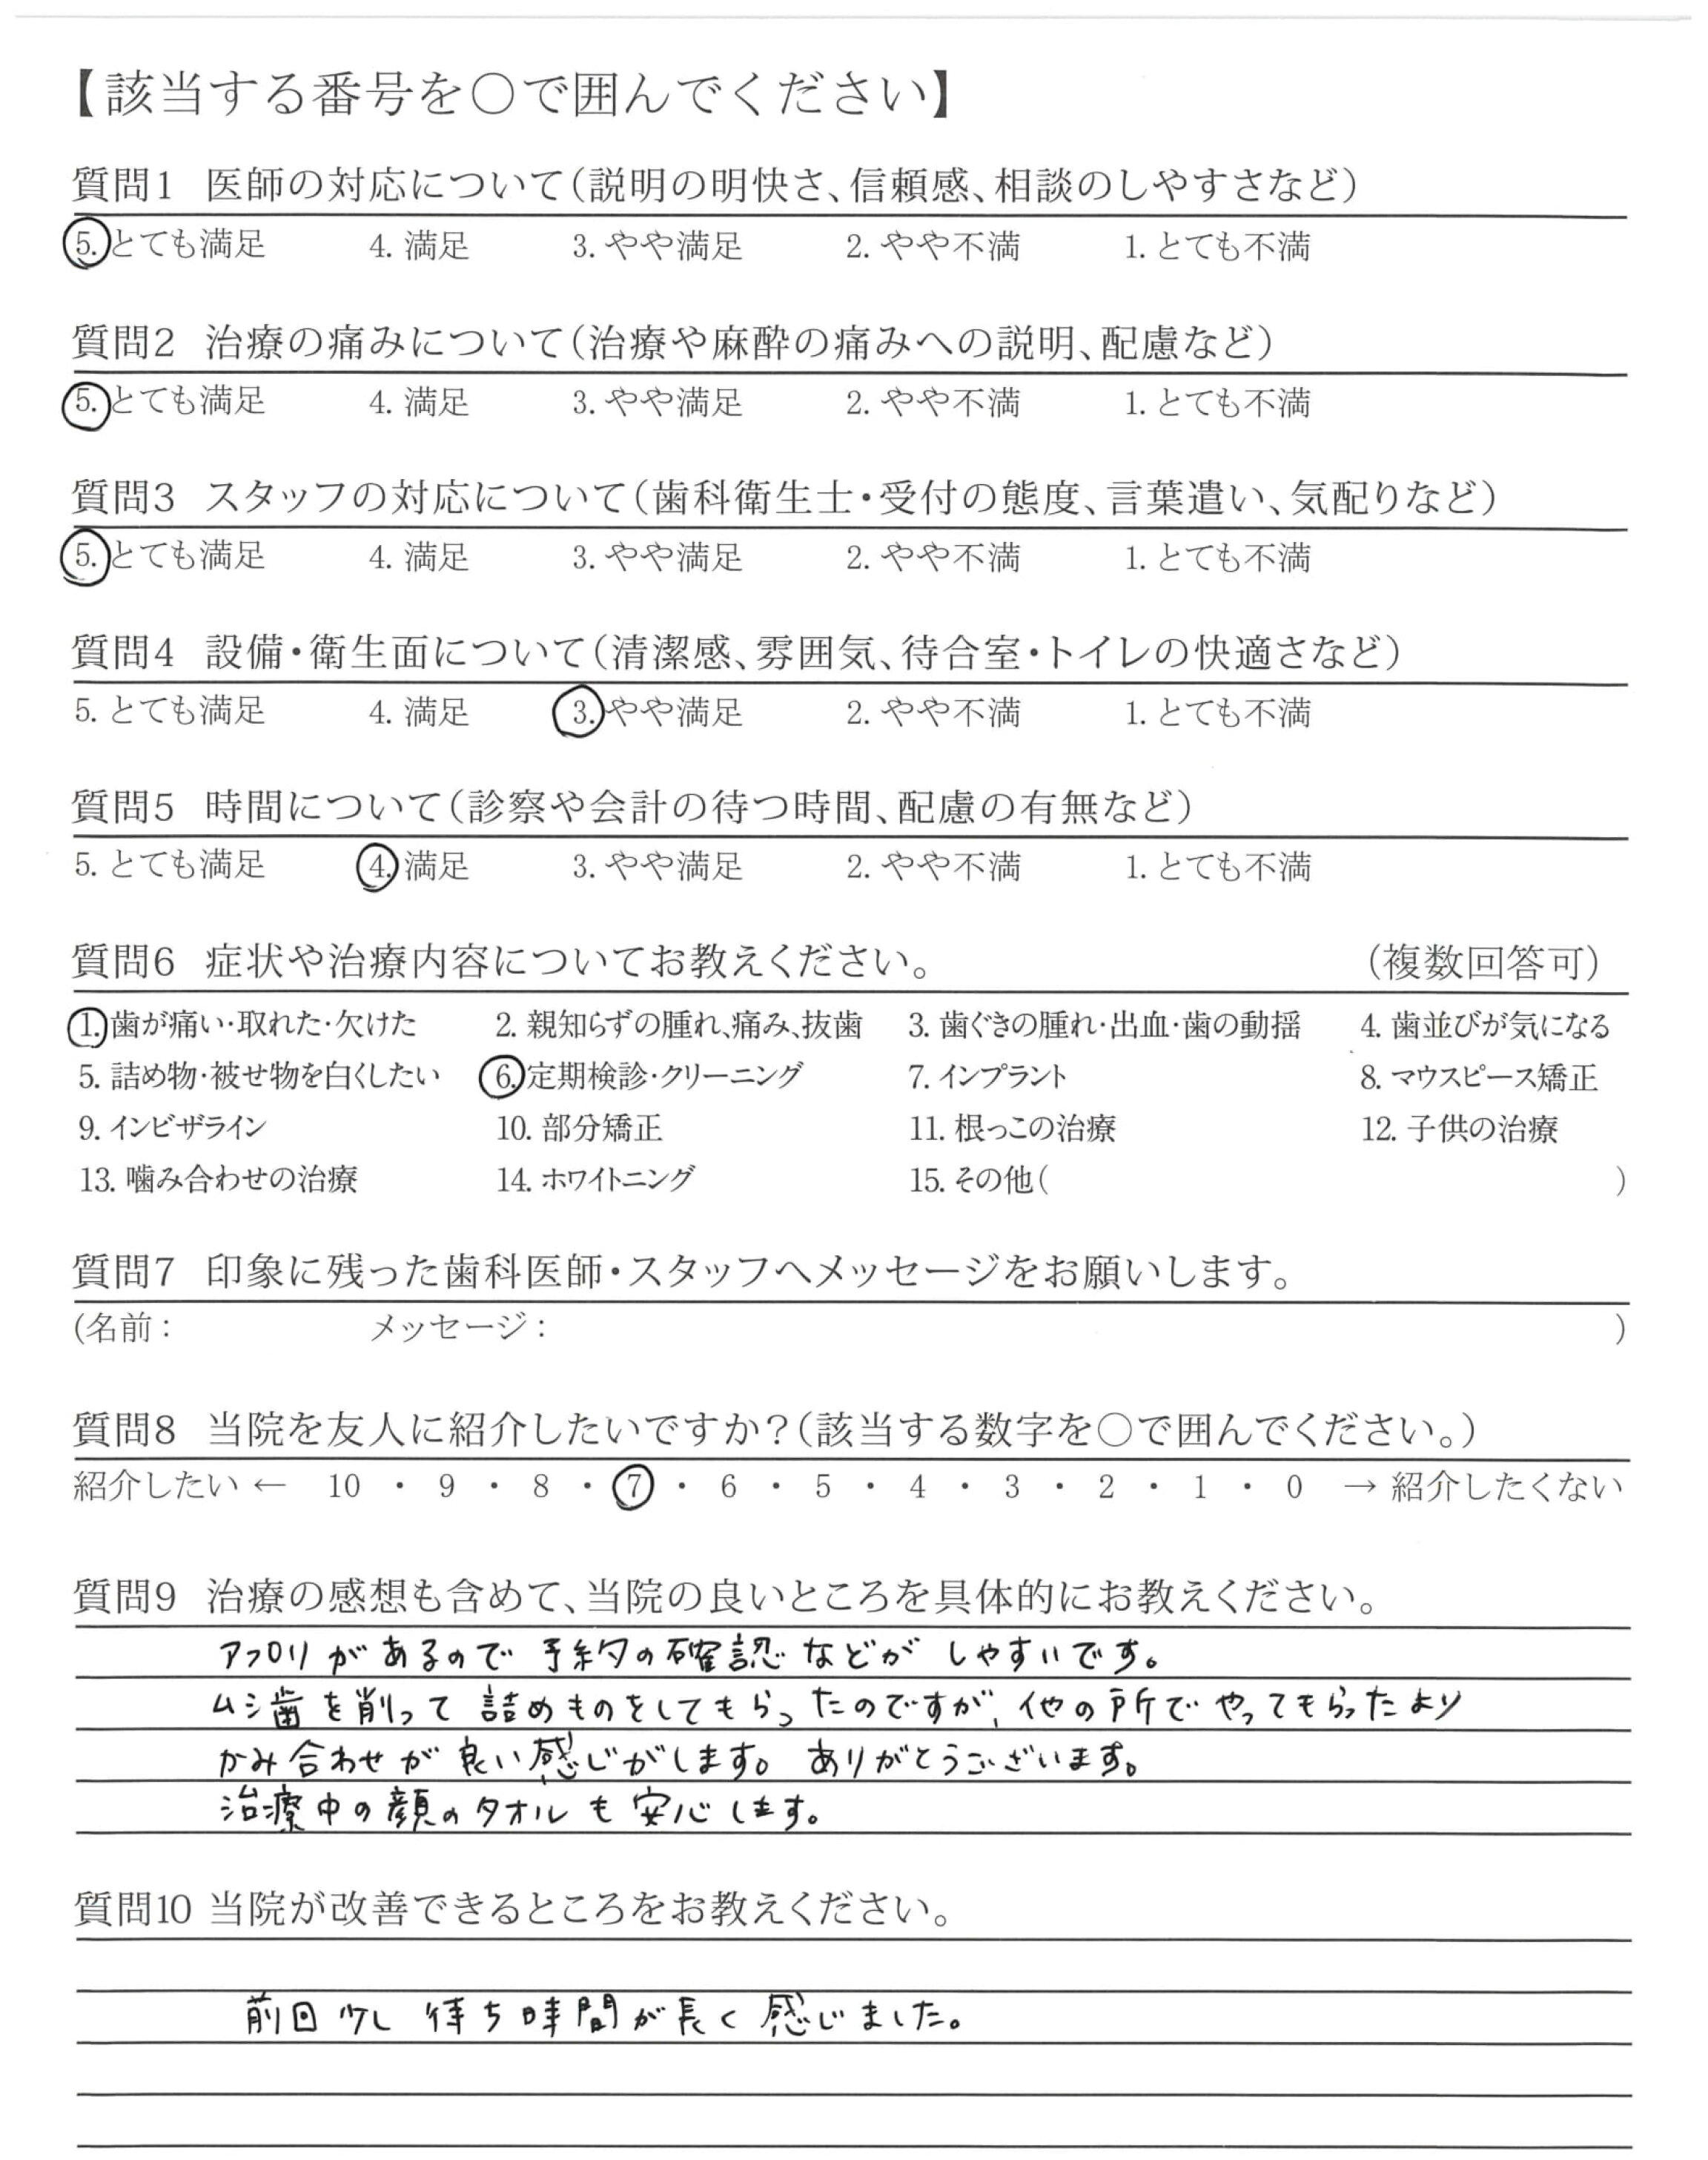 【該当する番号を○で囲んでください】
質問1 医師の対応について(説明の明快さ、信頼感、相談のしやすさなど)
5. とても満足 4. 満足 3. やや満足 2. やや不満 1. とても不満
質問2 治療の痛みについて(治療や麻酔の痛みへの説明、配慮など)
5. とても満足 4. 満足 3. やや満足 2. やや不満 1. とても不満
質問3 スタッフの対応について(歯科衛生士・受付の態度、言葉遣い、気配りなど)
5. とても満足 4. 満足 3. やや満足 2. やや不満 1. とても不満
質問4 設備・衛生面について(清潔感、雰囲気、待合室・トイレの快適さなど)
5. とても満足 4. 満足 3. やや満足 2. やや不満 1. とても不満
質問5 時間について(診察や会計の待つ時間、配慮の有無など)
5. とても満足 4. 満足 3. やや満足 2. やや不満 1. とても不満
質問6 症状や治療内容についてお教えください。 (複数回答可)
1. 歯が痛い・取れた・欠けた 2. 親知らずの腫れ、痛み、抜歯 3. 歯ぐきの腫れ・出血・歯の動揺 4. 歯並びが気になる
5. 詰め物・被せ物を白くしたい 6. 定期検診・クリーニング 7. インプラント 8. マウスピース矯正
9. インビザライン 10. 部分矯正 11. 根っこの治療 12. 子供の治療
13. 噛み合わせの治療 14. ホワイトニング 15. その他( )
質問7 印象に残った歯科医師・スタッフへメッセージをお願いします。
(名前: メッセージ: )
質問8 当院を友人に紹介したいですか?(該当する数字を○で囲んでください。)
紹介したい ← 10 ・ 9 ・ 8 ・ 7 ・ 6 ・ 5 ・ 4 ・ 3 ・ 2 ・ 1 ・ 0 → 紹介したくない
質問9 治療の感想も含めて、当院の良いところを具体的にお教えください。
アプリがあるので予約の確認などがしやすいです。
ムシ歯を削って詰めものをしてもらったのですが、他の所でやってもらったより
かみ合わせが良い感じがします。ありがとうございます。
治療中の顔のタオルも安心します。
質問10 当院が改善できるところをお教えください。
前回少し待ち時間が長く感じました。